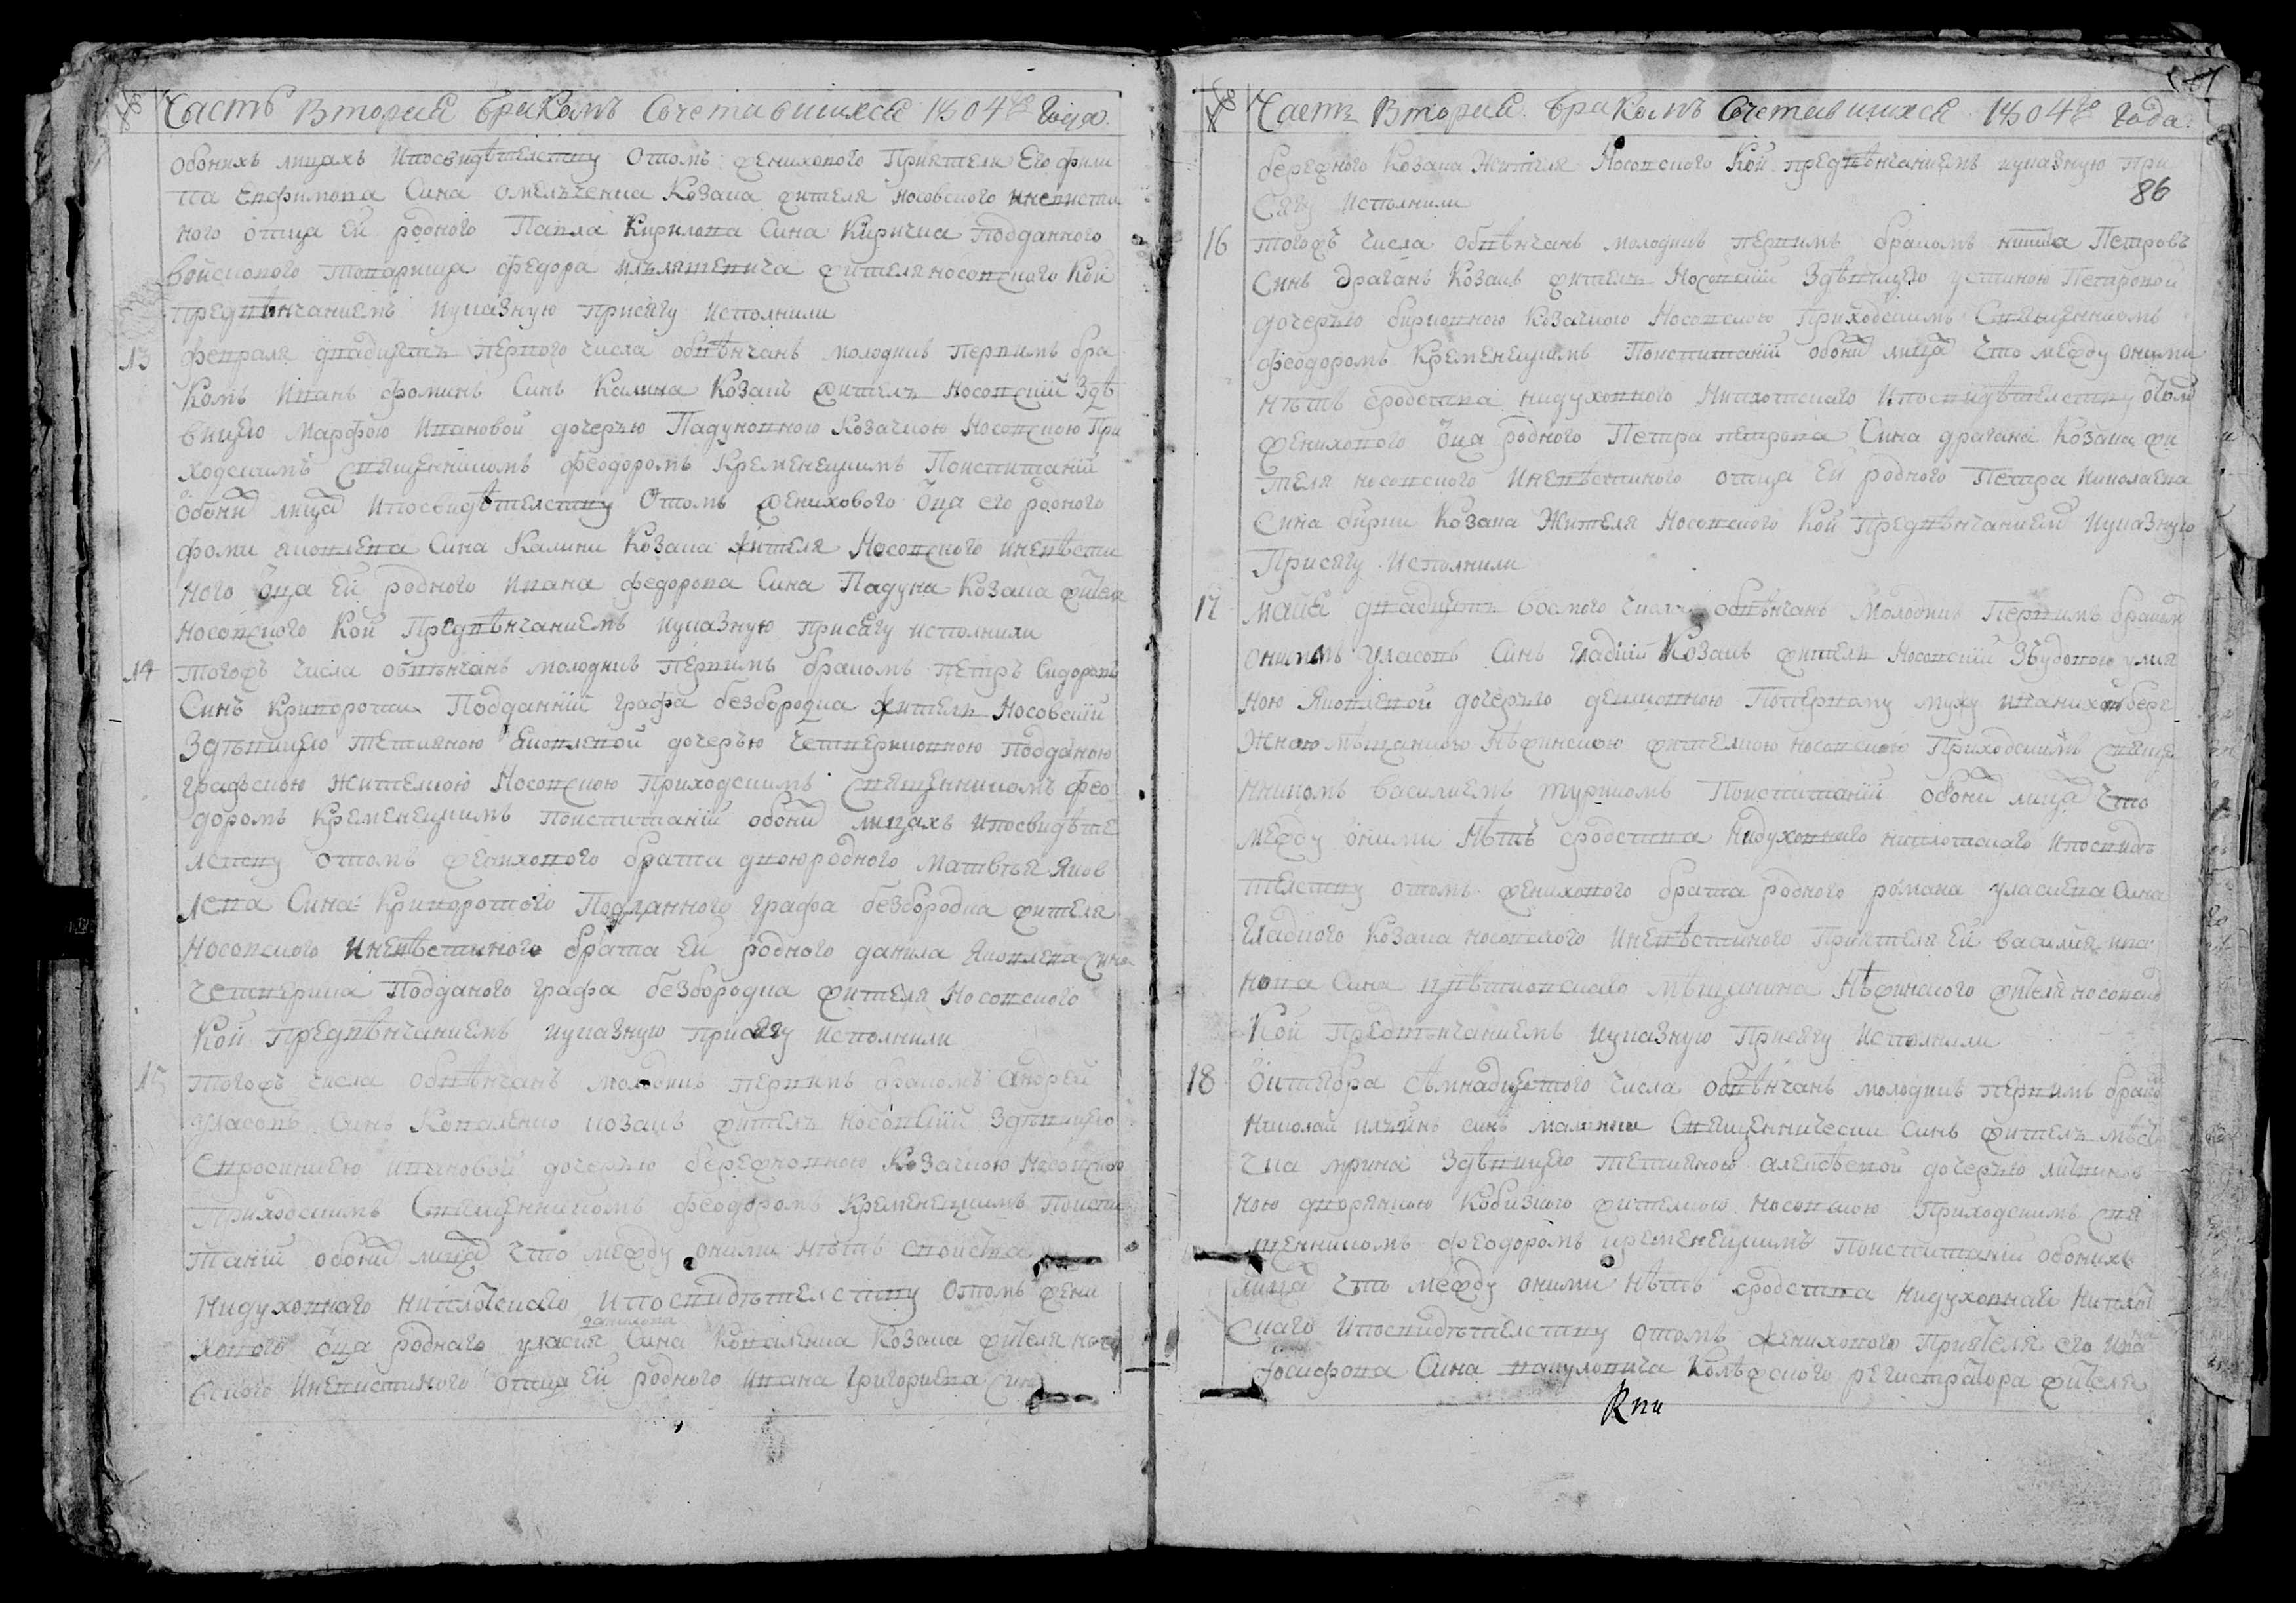 № Часть Вторая бракомъ Сочетавшихся 1804го года.
обоихъ лицахъ и посвидѣтелству Отомъ женихового Приятеля Его фили
па Евфимова Сина Омелъченка Козака жителя носовского и невисти
ного отца Ей родного Павла Кирилова Сина Киричка Подданного
войскового товарища федора жителя носовского Кои
предвѣнчаниемъ указную присягу исполнили
13 февраля двадцятъ первого числа обвѣнчанъ молодикъ первимъ бра
комъ Иванъ фоминъ Синъ Калина Козакъ жителъ носовскій Здѣ
вицею Марфою Ивановой дочерью Падуновною Козачкою Носовскою При
ходскимъ священникомъ феодоромъ Кременецкимъ Поиспитаніи
обоих лицах и посвидѣтелству Отомъ женихового оца его родного
фоми яковлева Сина Калини Козака жителя Носовского и невѣсти
ного оца Ей родного Ивана федорова Сина Падуна Козака жителя
носовского Кои Предвѣнчаниемъ указную присягу исполнили
14 тогожъ числа обвѣнчанъ молодикъ первимъ бракомъ петръ Сидоровъ
Синъ Криворотка Подданній графа безбородка жителъ Носовскій
Здѣвицею тетяною яковлевой дочерью четвериковною подданою
графскою жителкою Носовскою Приходскимъ священникомъ фео
доромъ Кременецкимъ Поиспитаніи обоих лицахъ и посвидѣте
лству отомъ женихового брата двоюродного Матвѣя яков
лева Сина Криворотого Подданного графа безбородка жителя
Носовского и невѣстиного брата Ей родного данила яковлева Сина
четверика Подданого графа безбородка жителя Носовского
Кои предвѣнчаниемъ указную присягу исполнили
15 тогожъ числа обвѣнчанъ молодикъ первимъ бракомъ андрей
уласовъ Синъ Коваленко козакъ жителъ носовскій Здѣвицею
Евросиниею ивановой дочерью бережновною Козачкою Носовскою
Приходскимъ Священникомъ феодоромъ Кременецкимъ Поиспи
таніи обоих лицах что между оними нѣтъ своиства
нидуховнаго ниплотскаго и посвидѣтелству Отомъ жени
хового оца роднаго уласия данилова Сина Коваленка Козака жителя носо
вского и невистиного отца Ей родного ивана григориева Сина
№ Часть Вторая бракомъ Сочетавшихся 1804го года.
бережного Козака Жителя Носовского Кои предвѣнчаниемъ указную при
сягу исполнили
86
16 тогожъ числа обвѣнчанъ молодикъ первимъ бракомъ никита Петровъ
Синъ драганъ Козакъ жителъ Носовскій Здѣвицею устиною Петровой
дочерью бирковною Козачкою Носовскою Приходскимъ Священникомъ
феодоромъ Кременецкимъ Поиспитаніи обоих лицах что между оними
нѣтъ сродства нидуховного ниплотскаго и посвидѣтелству отом
женихового оца родного Петра петрова Сина драгана Козака жи
теля носовского и невѣстиного отца Ей родного Петра николаева
Сина бирки Козака Жителя Носовского Кои Предвѣнчанием указную
Присягу исполнили
17 майя двадцятъ восмого числа обвѣнчанъ молодикъ Первимъ браком
онисимъ уласовъ Синъ гладкій Козакъ жителъ Носовскій Звдовою улия
ною яковлевой дочерью демковною Попервому мужу иванихой бере
жною мѣщанкою нѣжинскою жителкою носовскою Приходскимъ свяще
нникомъ василиемъ туркомъ Поиспитаніи обоих лицах что
между оними нѣтъ сродства нидуховнаго ниплотскаго и посвидѣ
телству отомъ женихового брата родного романа уласиева Сина
гладкого Козака носовского и невѣстиного Приятеля Ей василия ива
нова Сина цвѣтковскаго мѣщанина нѣжинского жителя носовског
Кои Предвѣнчаниемъ указную Присягу исполнили
18 октября сѣмнадцетого числа обвѣнчанъ молодикъ первимъ браком
николай илъинъ синъ Священнически синъ жителъ мѣст
чка мрина Здѣвицею тетияною алексѣевой дочерью
ною дворянкою Кобизкого жителкою носовскою Приходскимъ свя
щенникомъ феодоромъ кременецкимъ поиспитаніи обоихъ
лицах что между оними нѣтъ сродства нидуховнаго ниплот
скаго и посвидѣтелству отомъ женихового Приятеля его ивана
йосифова Сина Колъжского регистратора жителя
Кпи